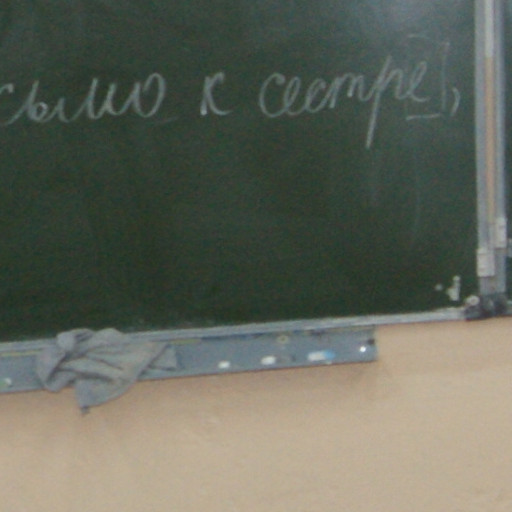 сьмо к сестре],